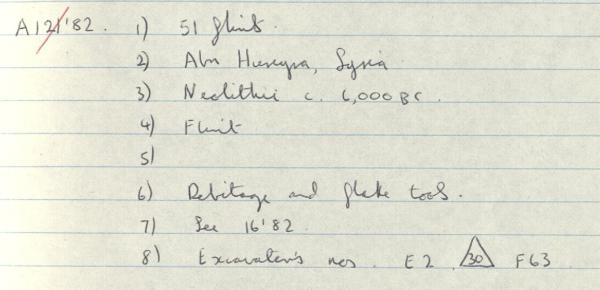 A121'82. 1) 51 flints.
2) Abu Hureyra, Syria
3) Neolithic c. 6,000 BC.
4) Flint
5)
6) Debitage and flake tools.
7) See 16'82.
8) Excavator's nos. E2 30 F63